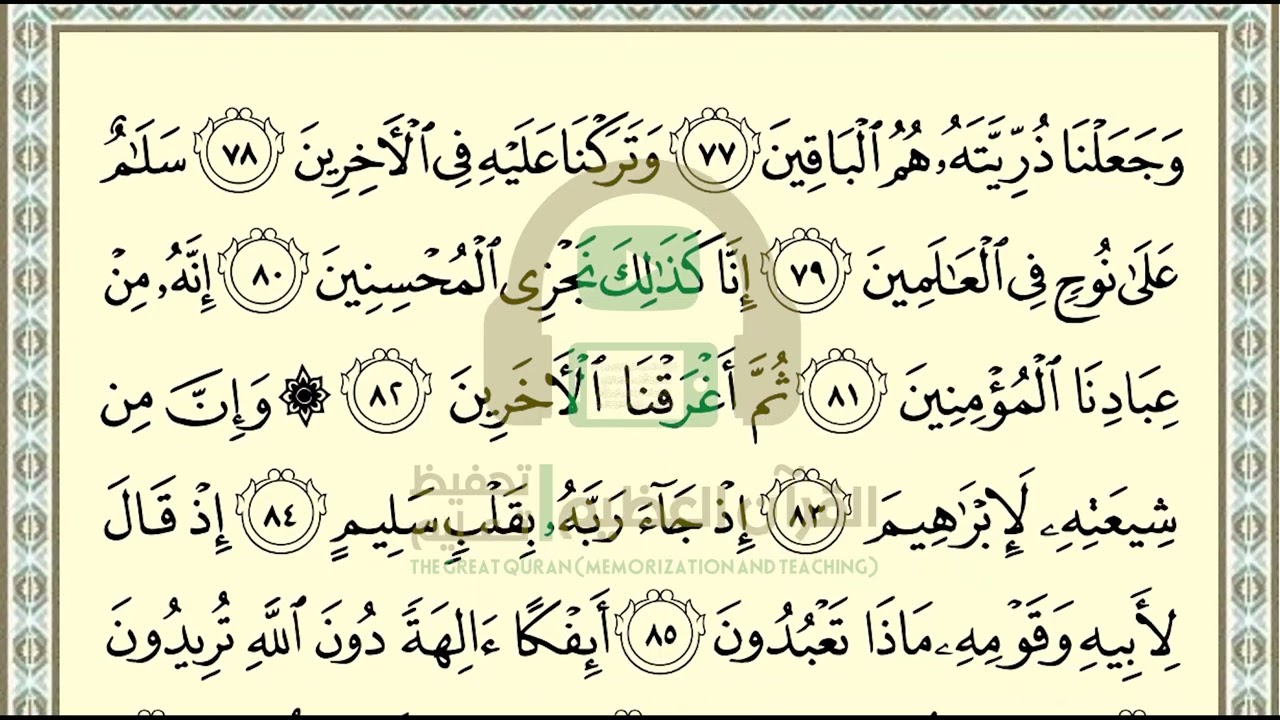 وَجَعَلْنَا ذُرِّيَّتَهُۥ هُمُ ٱلْبَاقِينَ ٧٧ وَتَرَكْنَا عَلَيْهِ فِى ٱلْأَخِرِينَ ٧٨ سَلَٰمٌ
عَلَىٰ نُوحٍ فِى ٱلْعَٰلَمِينَ ٧٩ إِنَّا كَذَٰلِكَ نَجْزِى ٱلْمُحْسِنِينَ ٨٠ إِنَّهُۥ مِنْ
عِبَادِنَا ٱلْمُؤْمِنِينَ ٨١ ثُمَّ أَغْرَقْنَا ٱلْأَخَرِينَ ٨٢ ۞ وَإِنَّ مِن
شِيعَتِهِۦ لَإِبْرَٰهِيمَ ٨٣ إِذْ جَآءَ رَبَّهُۥ بِقَلْبٍ سَلِيمٍ ٨٤ إِذْ قَالَ
لِأَبِيهِ وَقَوْمِهِۦ مَاذَا تَعْبُدُونَ ٨٥ أَئِفْكًا ءَالِهَةً دُونَ ٱللَّهِ تُرِيدُونَ
القرآن العظيم | تحفيظ
THE GREAT QURAN (MEMORIZATION AND TEACHING)